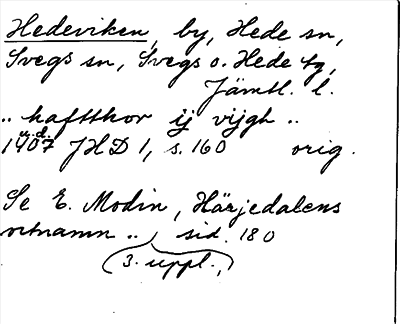 Hedeviken, by, Hede sn,
Svegs sn, Svegs o. Hede tg,
Jämtl. l.
.. haftthor ij vijgh ..
u.d.
1407 JHD 1, s. 160 orig.
Se E. Modin, Härjedalens
ortnamn .., sid. 180
(3. uppl.,)